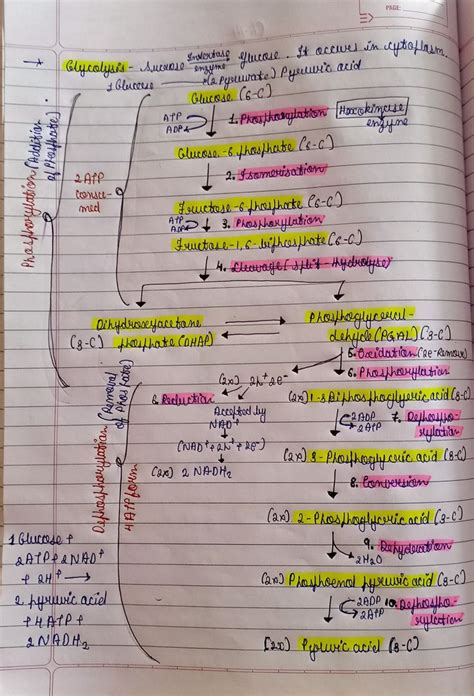 PAGE:
→ Glycolysis - Sucrose Invertase enzyme → Glucose. It occurs in cytoplasm.
1 Glucose → (2 Pyruvate) Pyruvic acid
Glucose (6-C)
ATP
ADP
1. Phosphorylation
Hexokinase enzyme
Glucose-6 phosphate (6-C)
2. Isomerisation
Fructose-6 phosphate (6-C)
ATP
ADP
3. Phosphorylation
Fructose-1,6-biphosphate (6-C)
4. Cleavage (split-Hydrolyse)
Phosphorylation (Addition of Phosphate)
2 ATP consumed
Dihydroxyacetane phosphate (DHAP)
(3-C)
dehyde (PGAL) (3-C)
5. Oxidation (2e- Remove)
6. Phosphorylation
(2x) 2H+ 2e-
6. Reduction
Accepted by
NAD+
(NAD+ + 2H+ + 2e-)
(2x) 2 NADH2
Dephosphorylation (Removal of Phosphate)
4 ATP form
(2x) 1-3 Biphosphoglyceric acid (3-C)
2ADP
2ATP
7. Dephosphorylation
(2x) 3-Phosphoglyceric acid (3-C)
8. Conversion
(2x) 2-Phosphoglyceric acid (3-C)
9. Dehydration
2H2O
(2x) Phosphoenol pyruvic acid (3-C)
2ADP
2ATP
10. Dephosphorylation
(2x) Pyruvic acid (3-C)
1 Glucose +
2ATP + 2NAD+
+ 2H+ →
2 pyruvic acid
+ 4ATP +
2 NADH2